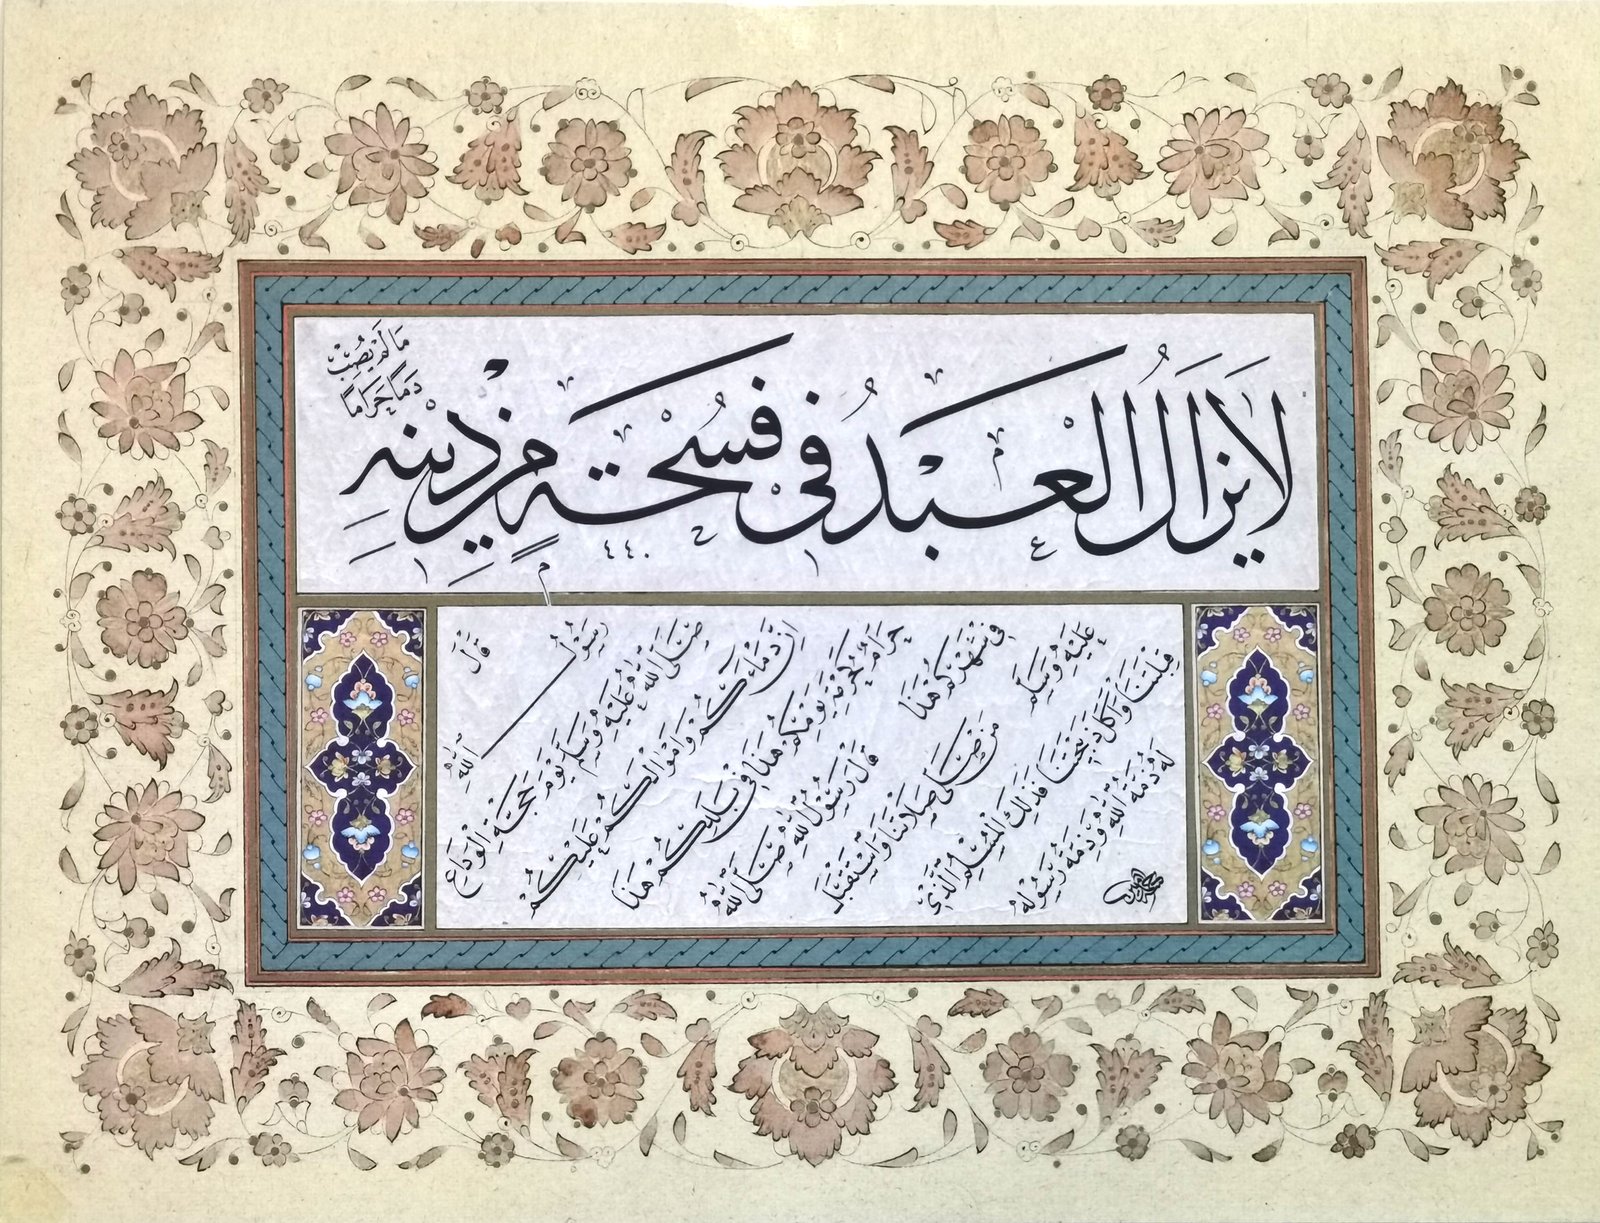 لَا يَزَالُ الْعَبْدُ فِى فُسْحَةٍ مِنْ دِينِهِ
مَا لَمْ يُصِبْ
دَمًا حَرَامًا
قَالَ رَسُولُ اللّٰهِ
صَلَّى اللّٰهُ عَلَيْهِ وَسَلَّمَ يَوْمَ حَجَّةِ الْوَدَاعِ
إِنَّ دِمَاءَكُمْ وَأَمْوَالَكُمْ عَلَيْكُمْ
حَرَامٌ كَحُرْمَةِ يَوْمِكُمْ هٰذَا فِى بَلَدِكُمْ هٰذَا
فِى شَهْرِكُمْ هٰذَا
قَالَ رَسُولُ اللّٰهِ صَلَّى اللّٰهُ
عَلَيْهِ وَسَلَّمَ
مَنْ صَلَّى صَلَاتَنَا وَاسْتَقْبَلَ
قِبْلَتَنَا وَأَكَلَ ذَبِيحَتَنَا فَذٰلِكَ الْمُسْلِمُ الَّذِى
لَهُ ذِمَّةُ اللّٰهِ وَذِمَّةُ رَسُولِهِ